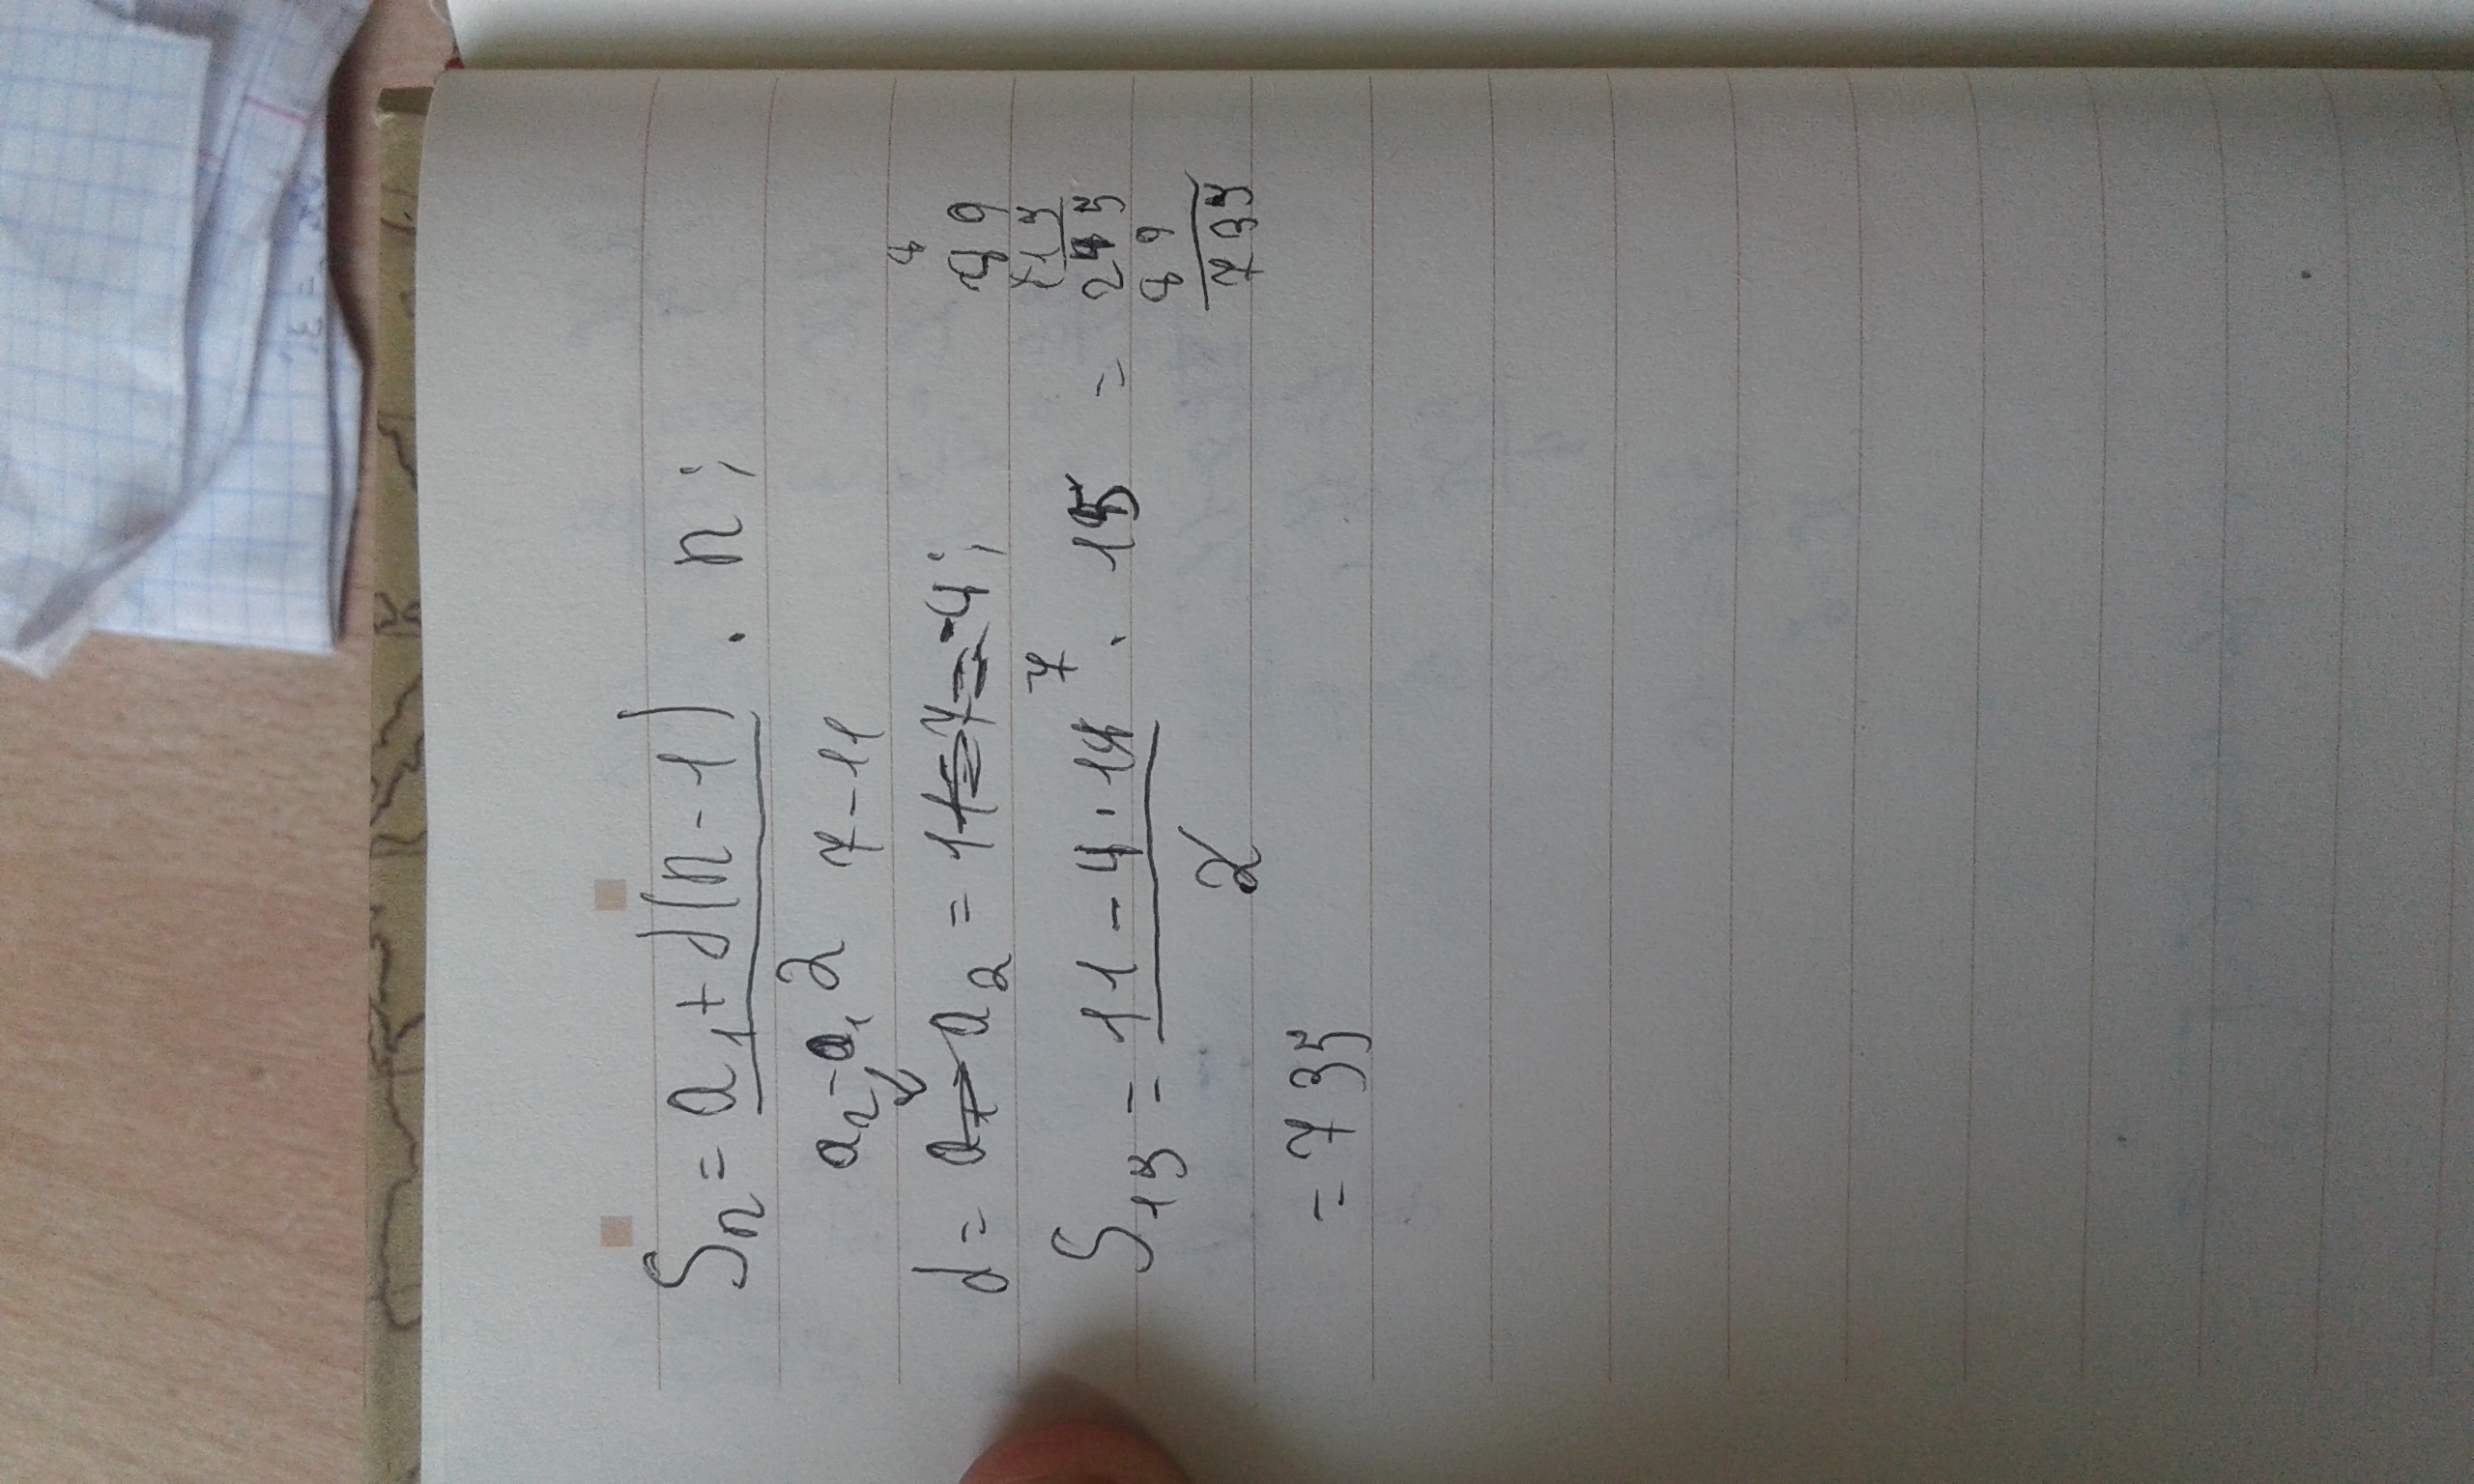 Sn = a1 + d(n-1) / 2 · n;
a2-a1 7-11
d = a1-a2 = 11-7=-4;
S15 = 11-4·14 / 2 · 15 =
7
= 735
4
49
×15
245
49
735